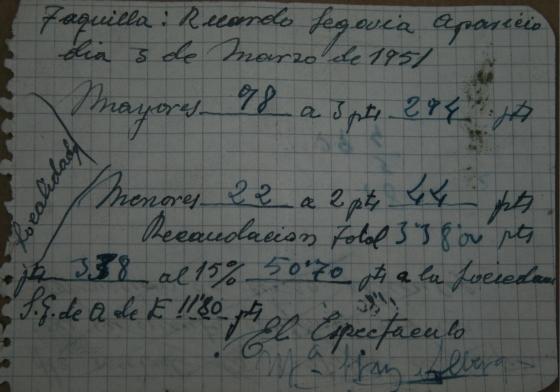 Taquilla: Ricardo Segovia Aparicio
dia 3 de Marzo de 1951
Mayores 98 a 3 pts 294 pts
Localidades
Menores 22 a 2 pts 44 pts
Recaudacion Total 338'00 pts
pts 338 al 15% 50'70 pts a la Sociedad
S.G. de A de E 11'80 pts
El Espectaculo
Mª